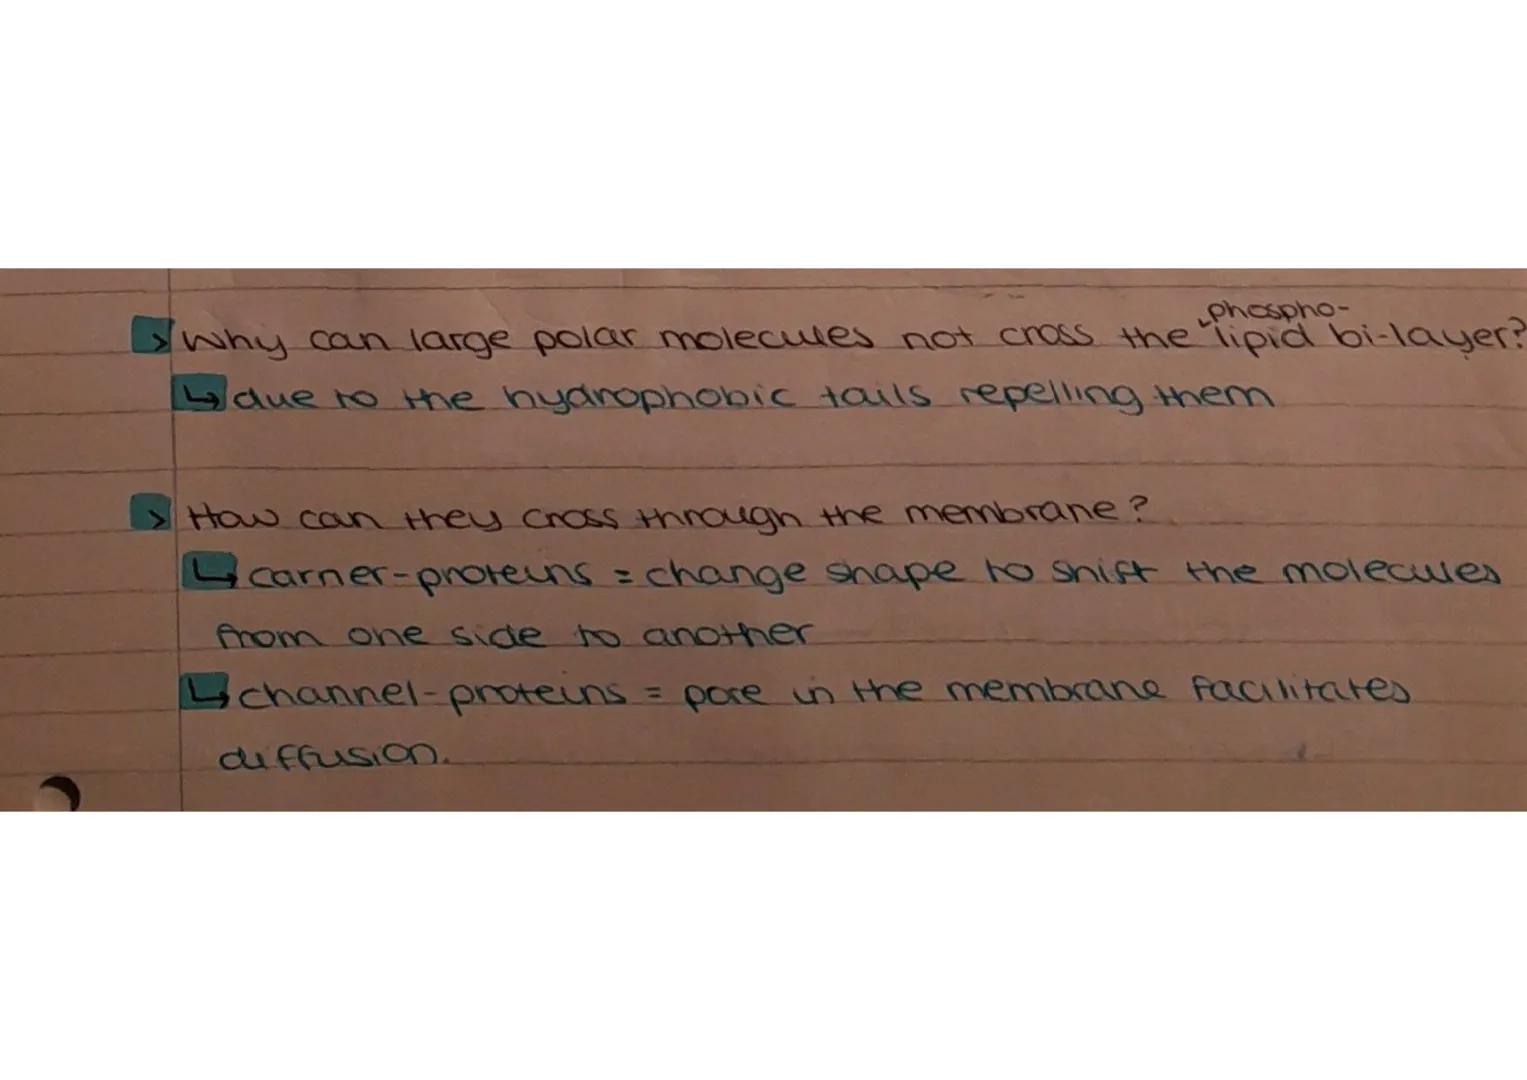 > Why can large polar molecules not cross the phospho-lipid bi-layer?
↳ due to the hydrophobic tails repelling them
> How can they cross through the membrane?
↳ carrier-proteins = change shape to shift the molecules
from one side to another
↳ channel-proteins = pore in the membrane facilitates
diffusion.